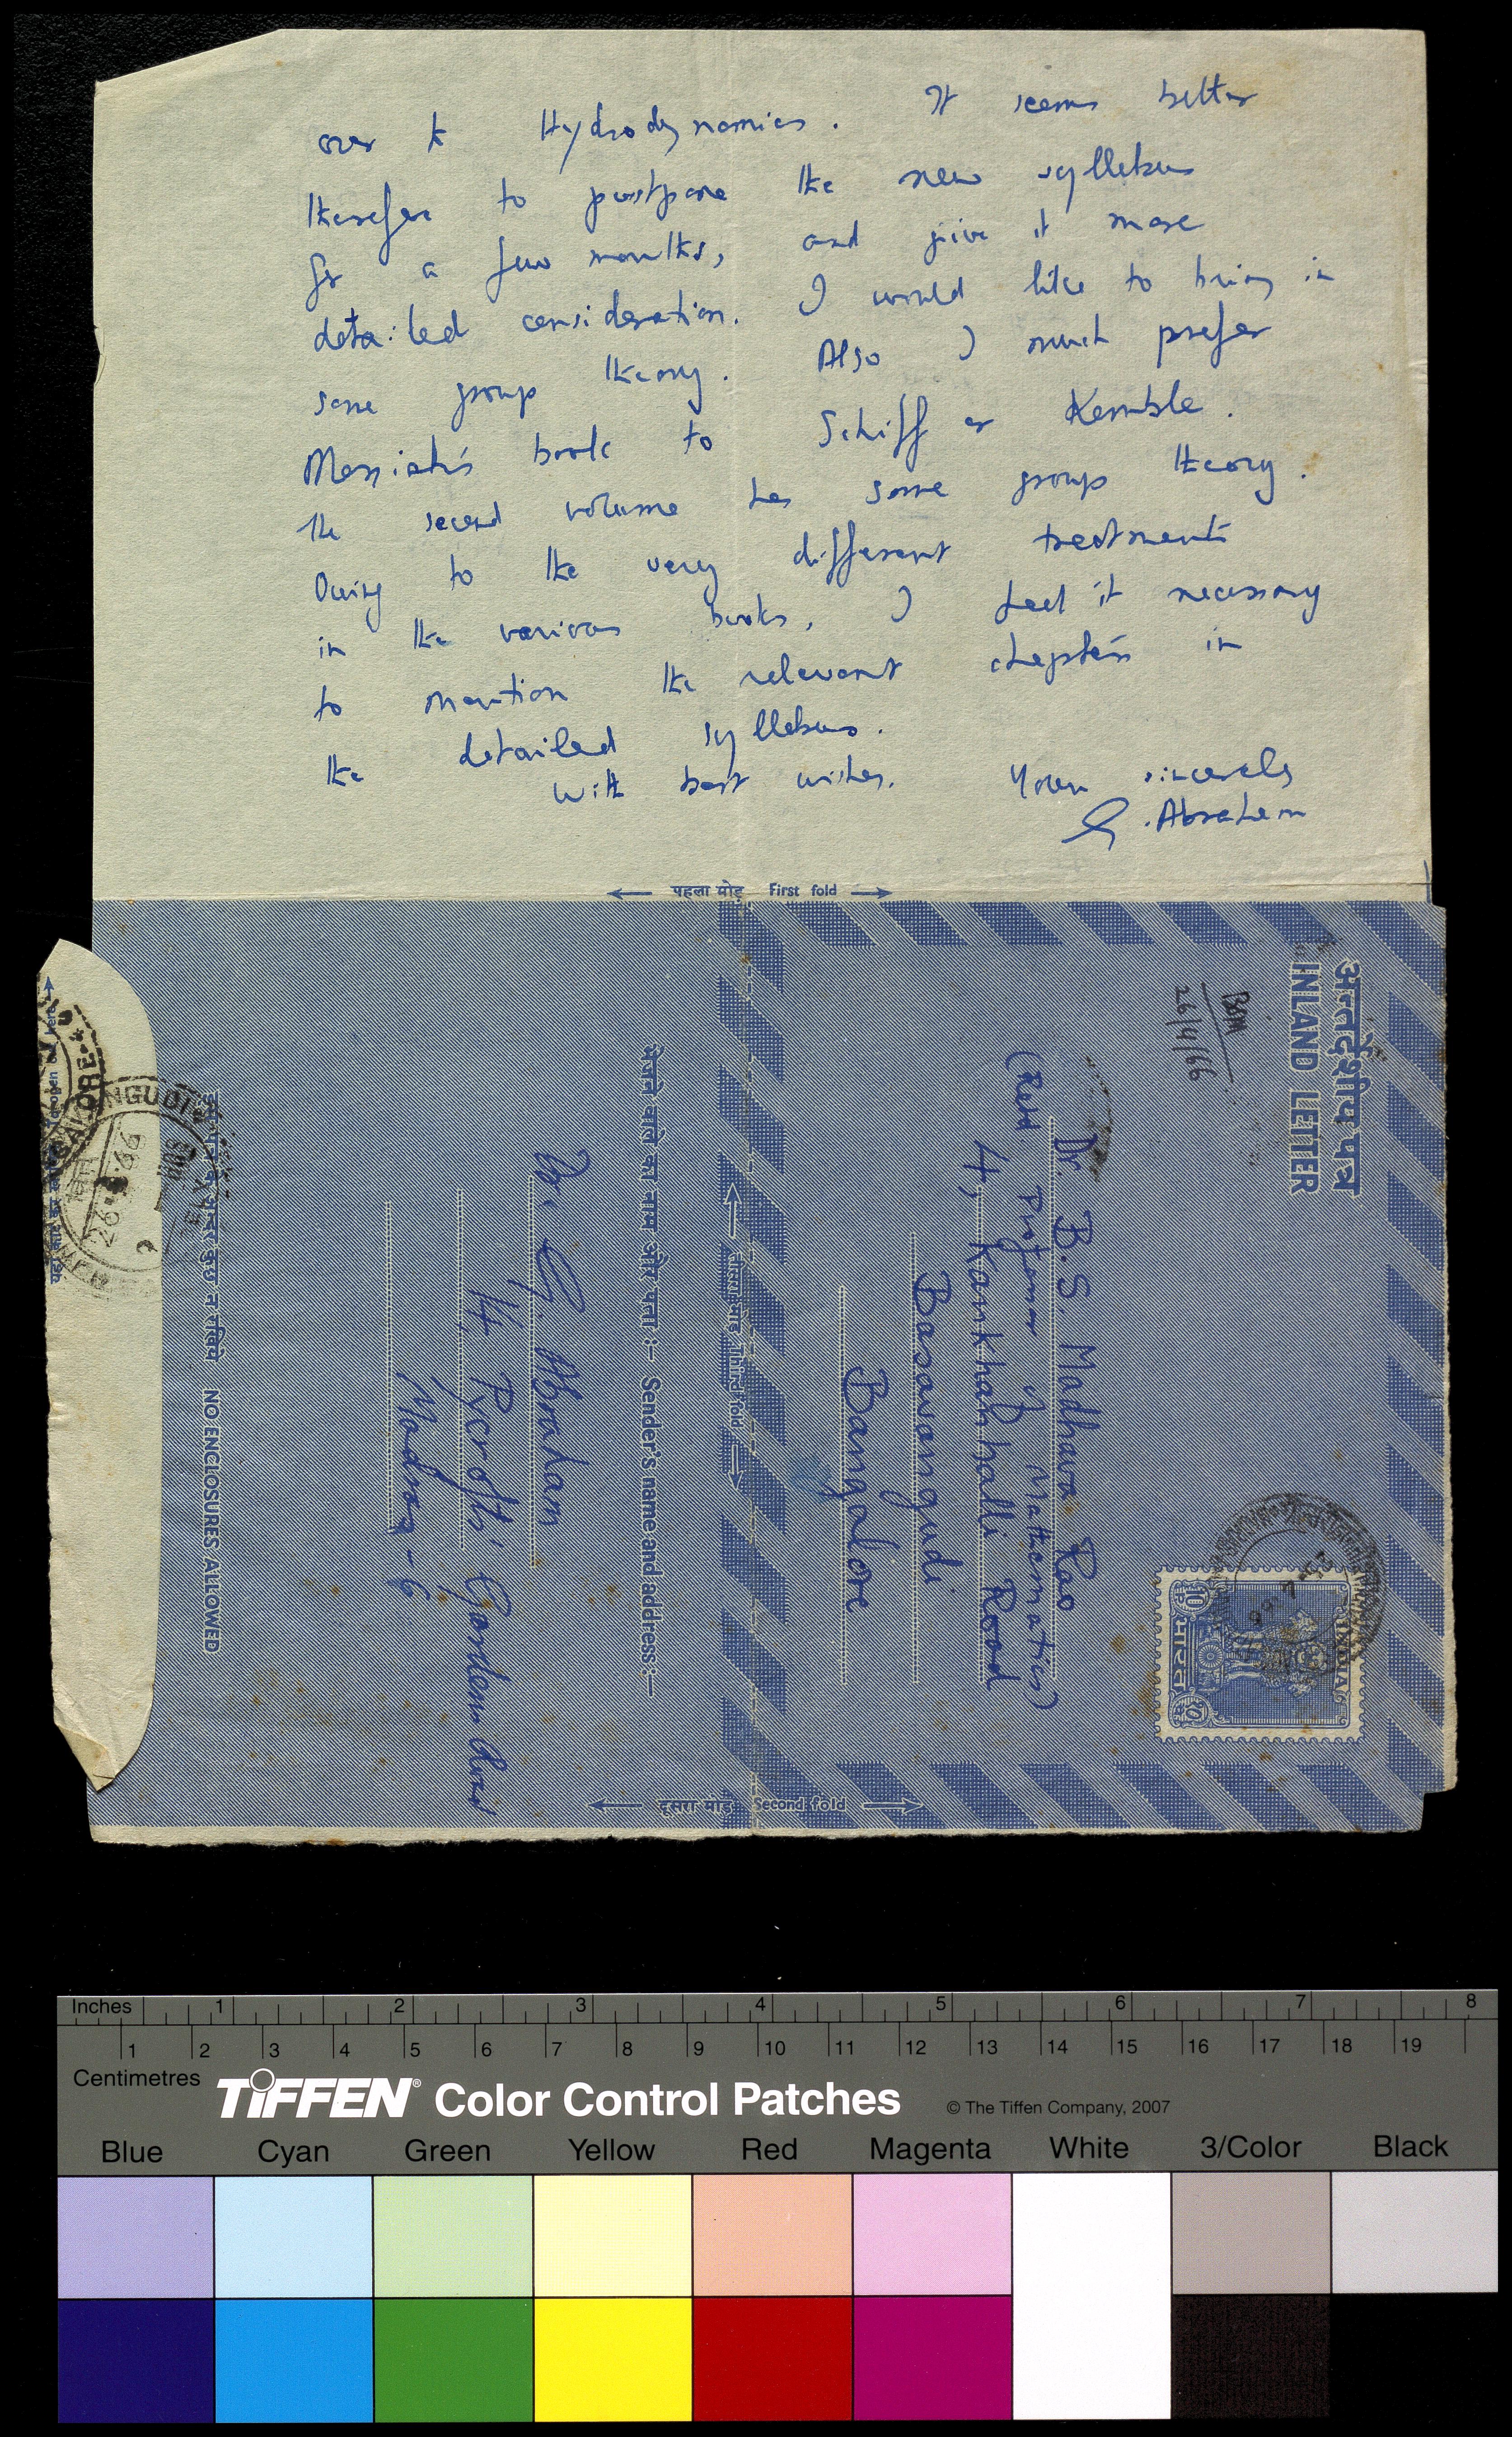 over to Hydrodynamics. It seems better
therefore to postpone the new syllabus
for a few months, and give it more
detailed consideration. I would like to bring in
some group theory. Also I much prefer
Messiah's book to Schiff or Kemble.
The second volume has some group theory.
Owing to the very different treatments
in the various books, I feel it necessary
to mention the relevant chapters in
the detailed syllabus.
With best wishes. Yours sincerely
G. Abraham
पहला मोड़ First fold
अन्तर्देशीय पत्र
INLAND LETTER
BSM
26/4/66
INDIA
भारत
Dr. B. S. Madhava Rao
(Retd. Professor of Mathematics)
4, Kankhanhalli Road
Basavangudi
Bangalore
तीसरा मोड़ Third fold
भेजने वाले का नाम और पता :— Sender's name and address :—
Dr. G. Abraham
14, Pycrofts' Garden Road
Madras - 6
NO ENCLOSURES ALLOWED
दूसरा मोड़ Second fold
Inches 1 2 3 4 5 6 7 8
1 2 3 4 5 6 7 8 9 10 11 12 13 14 15 16 17 18 19
Centimetres
TIFFEN® Color Control Patches © The Tiffen Company, 2007
Blue Cyan Green Yellow Red Magenta White 3/Color Black